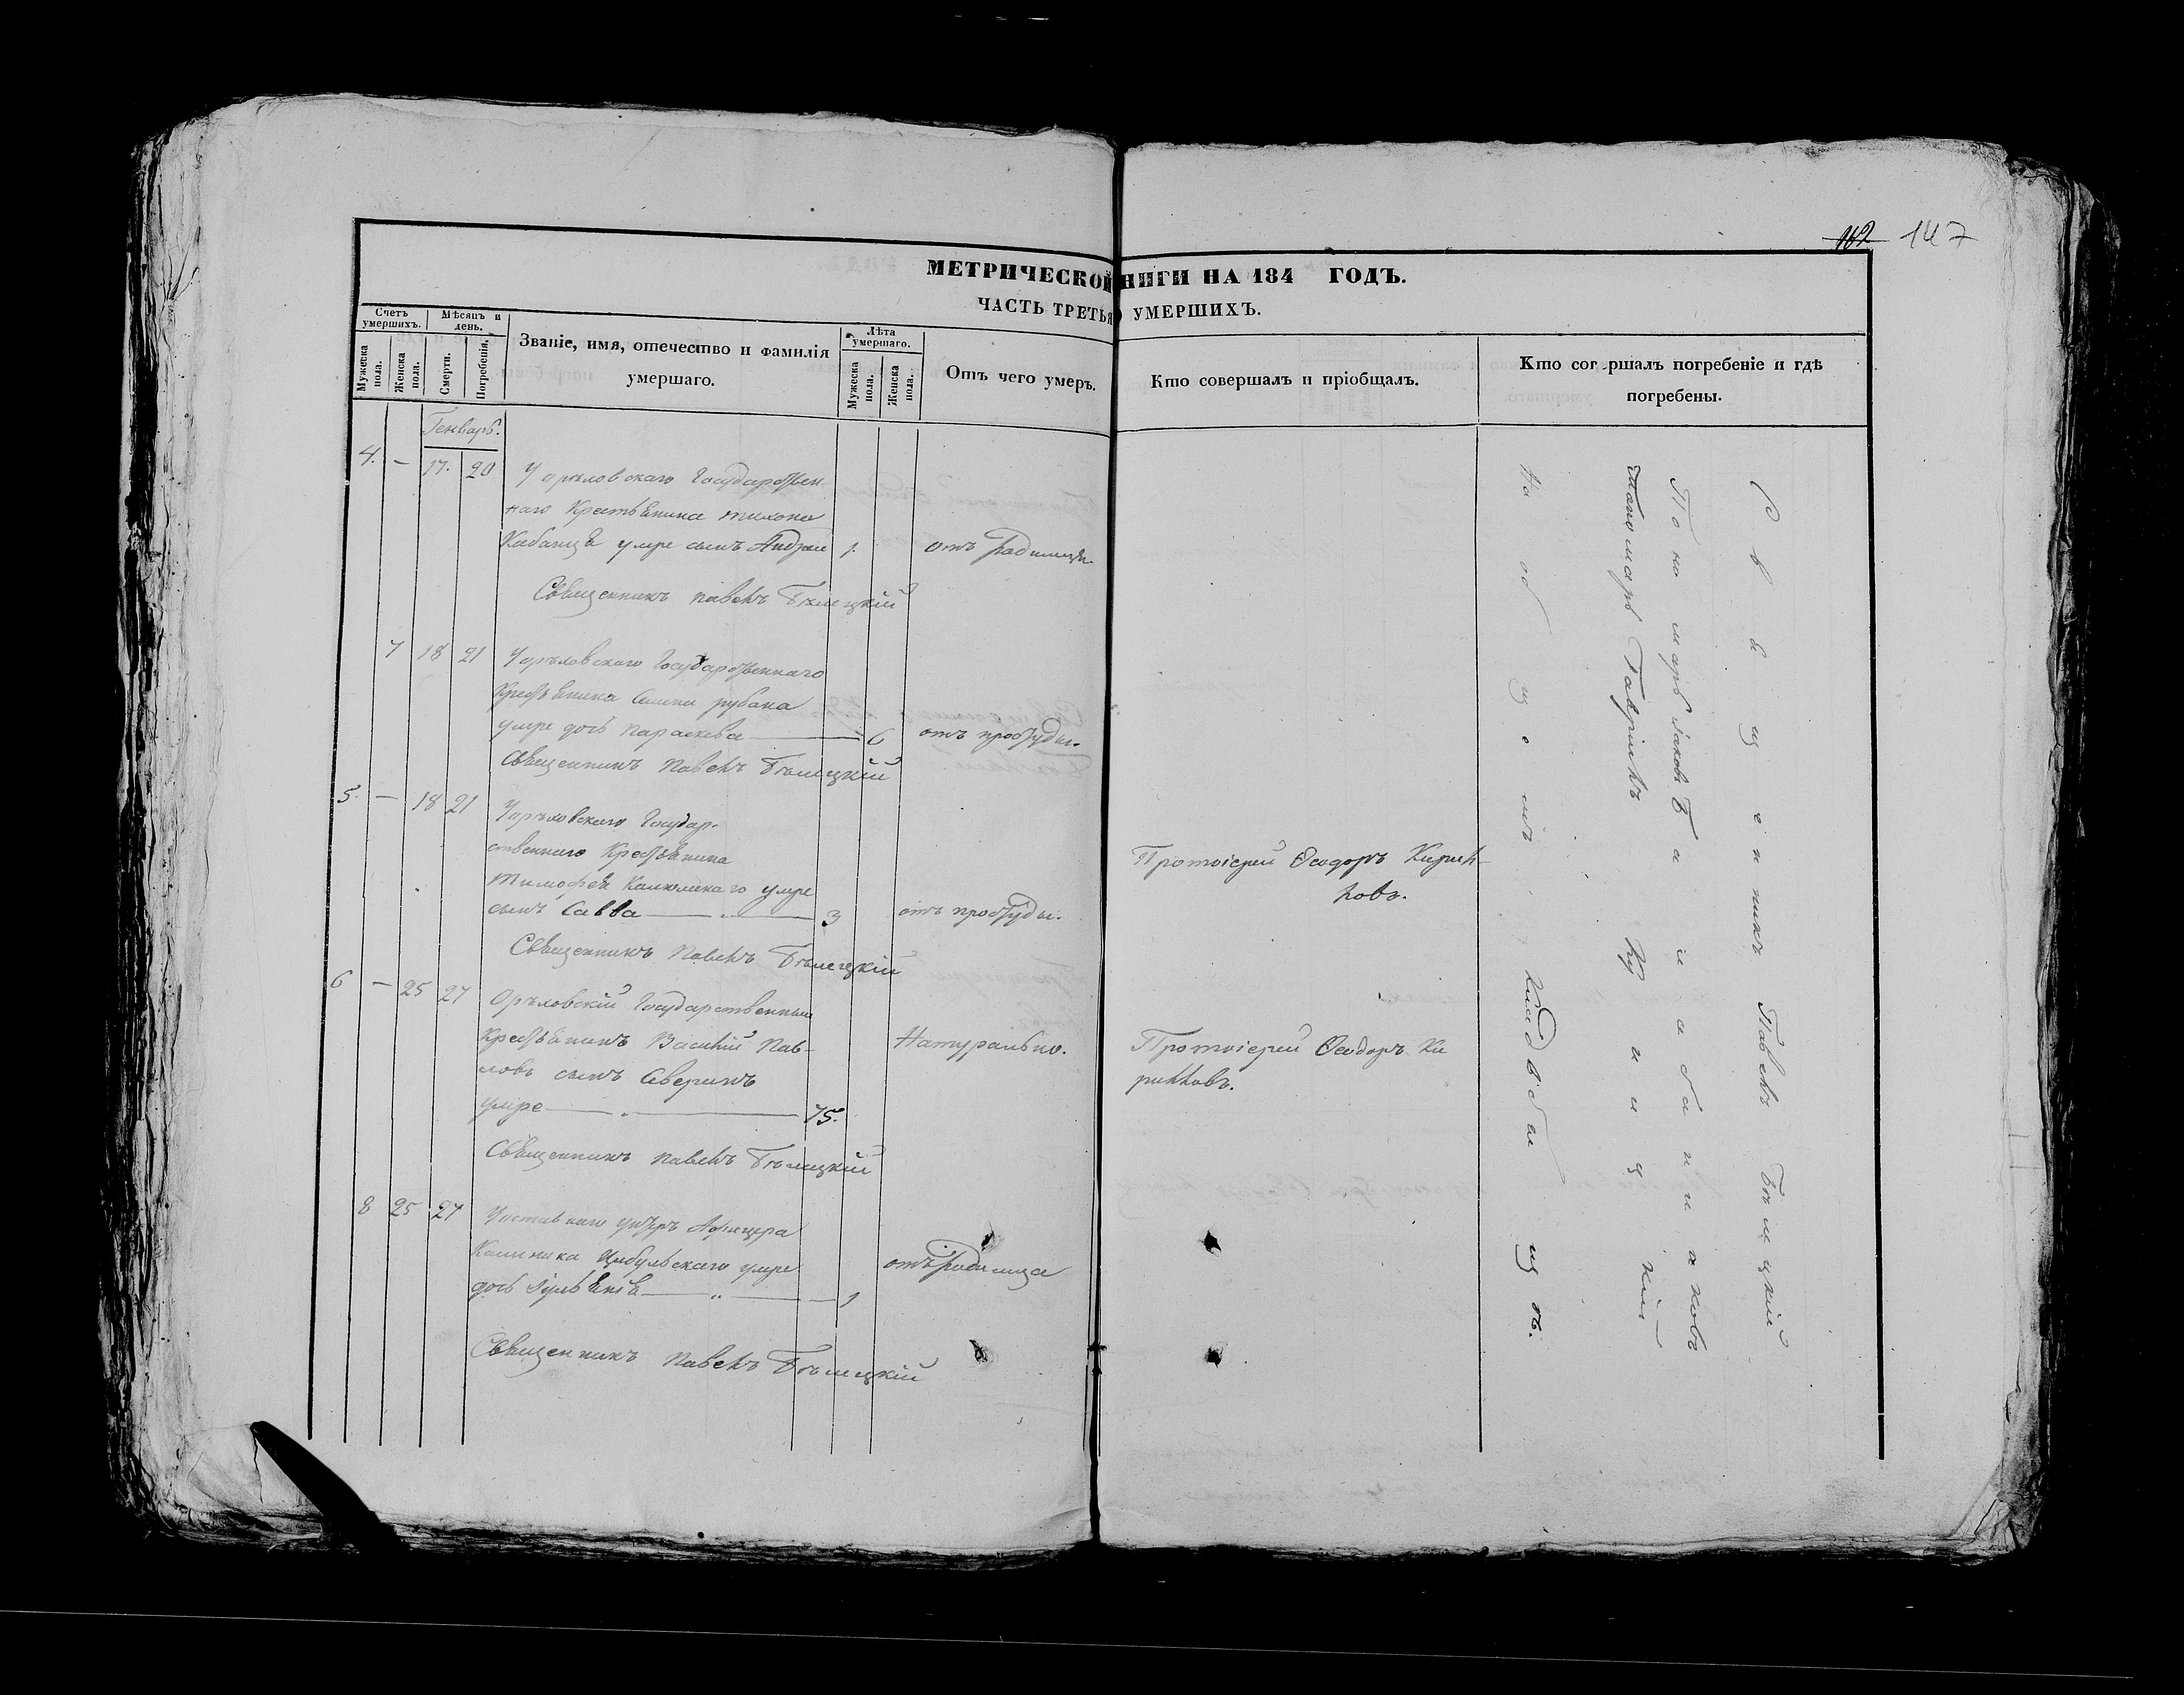 162 147
МЕТРИЧЕСКОЙ КНИГИ НА 184 ГОДЪ.
ЧАСТЬ ТРЕТЬЯ УМЕРШИХЪ.
Счетъ умершихъ.
Мужеска пола.
Женска пола.
Мѣсяцъ и день.
Смерти.
Погребенія.
Званіе, имя, отечество и фамилія
умершаго.
Лѣта умершаго.
Мужеска пола.
Женска пола.
Отъ чего умеръ.
Кто совершалъ и пріобщалъ.
Кто совершалъ погребеніе и гдѣ
погребены.
Генварь.
4. — 17. 20 У орѣловскаго Государствен
наго Крестьянина тихона
Кабанця умре сынъ Андрей 1. отъ родимца.
Священникъ павелъ Бѣлецкій
7 18 21 У орѣловскаго Государственнаго
Крестьянина рубана
умре дочь параскева 6 отъ простуды.
Священникъ павелъ Бѣлецкій
5. — 18 21 У орѣловскаго Государ-
ственнаго Крестьянина
тимофея умре
сынъ Савва 3 отъ простуды.
Протоіерей Ѳеодоръ Кирил-
ловъ.
Священникъ павелъ Бѣлецкій
6 — 25 27 Орѣловскій Государственный
Крестьянинъ Василій Пав-
ловъ сынъ Аверинъ
умре 75. Натурально.
Протоіерей Ѳеодоръ Ки
рилловъ.
Священникъ павелъ Бѣлецкій
8 25 27 У отставнаго унтеръ Афицера
Калиника Цыбульскаго умре
дочь 1 отъ родимца
Священникъ павелъ Бѣлецкій
Священникъ Павелъ Бѣлецкій
Пономарь Іаковъ
Пономарь Гавріилъ
На общемъ кладбищѣ.